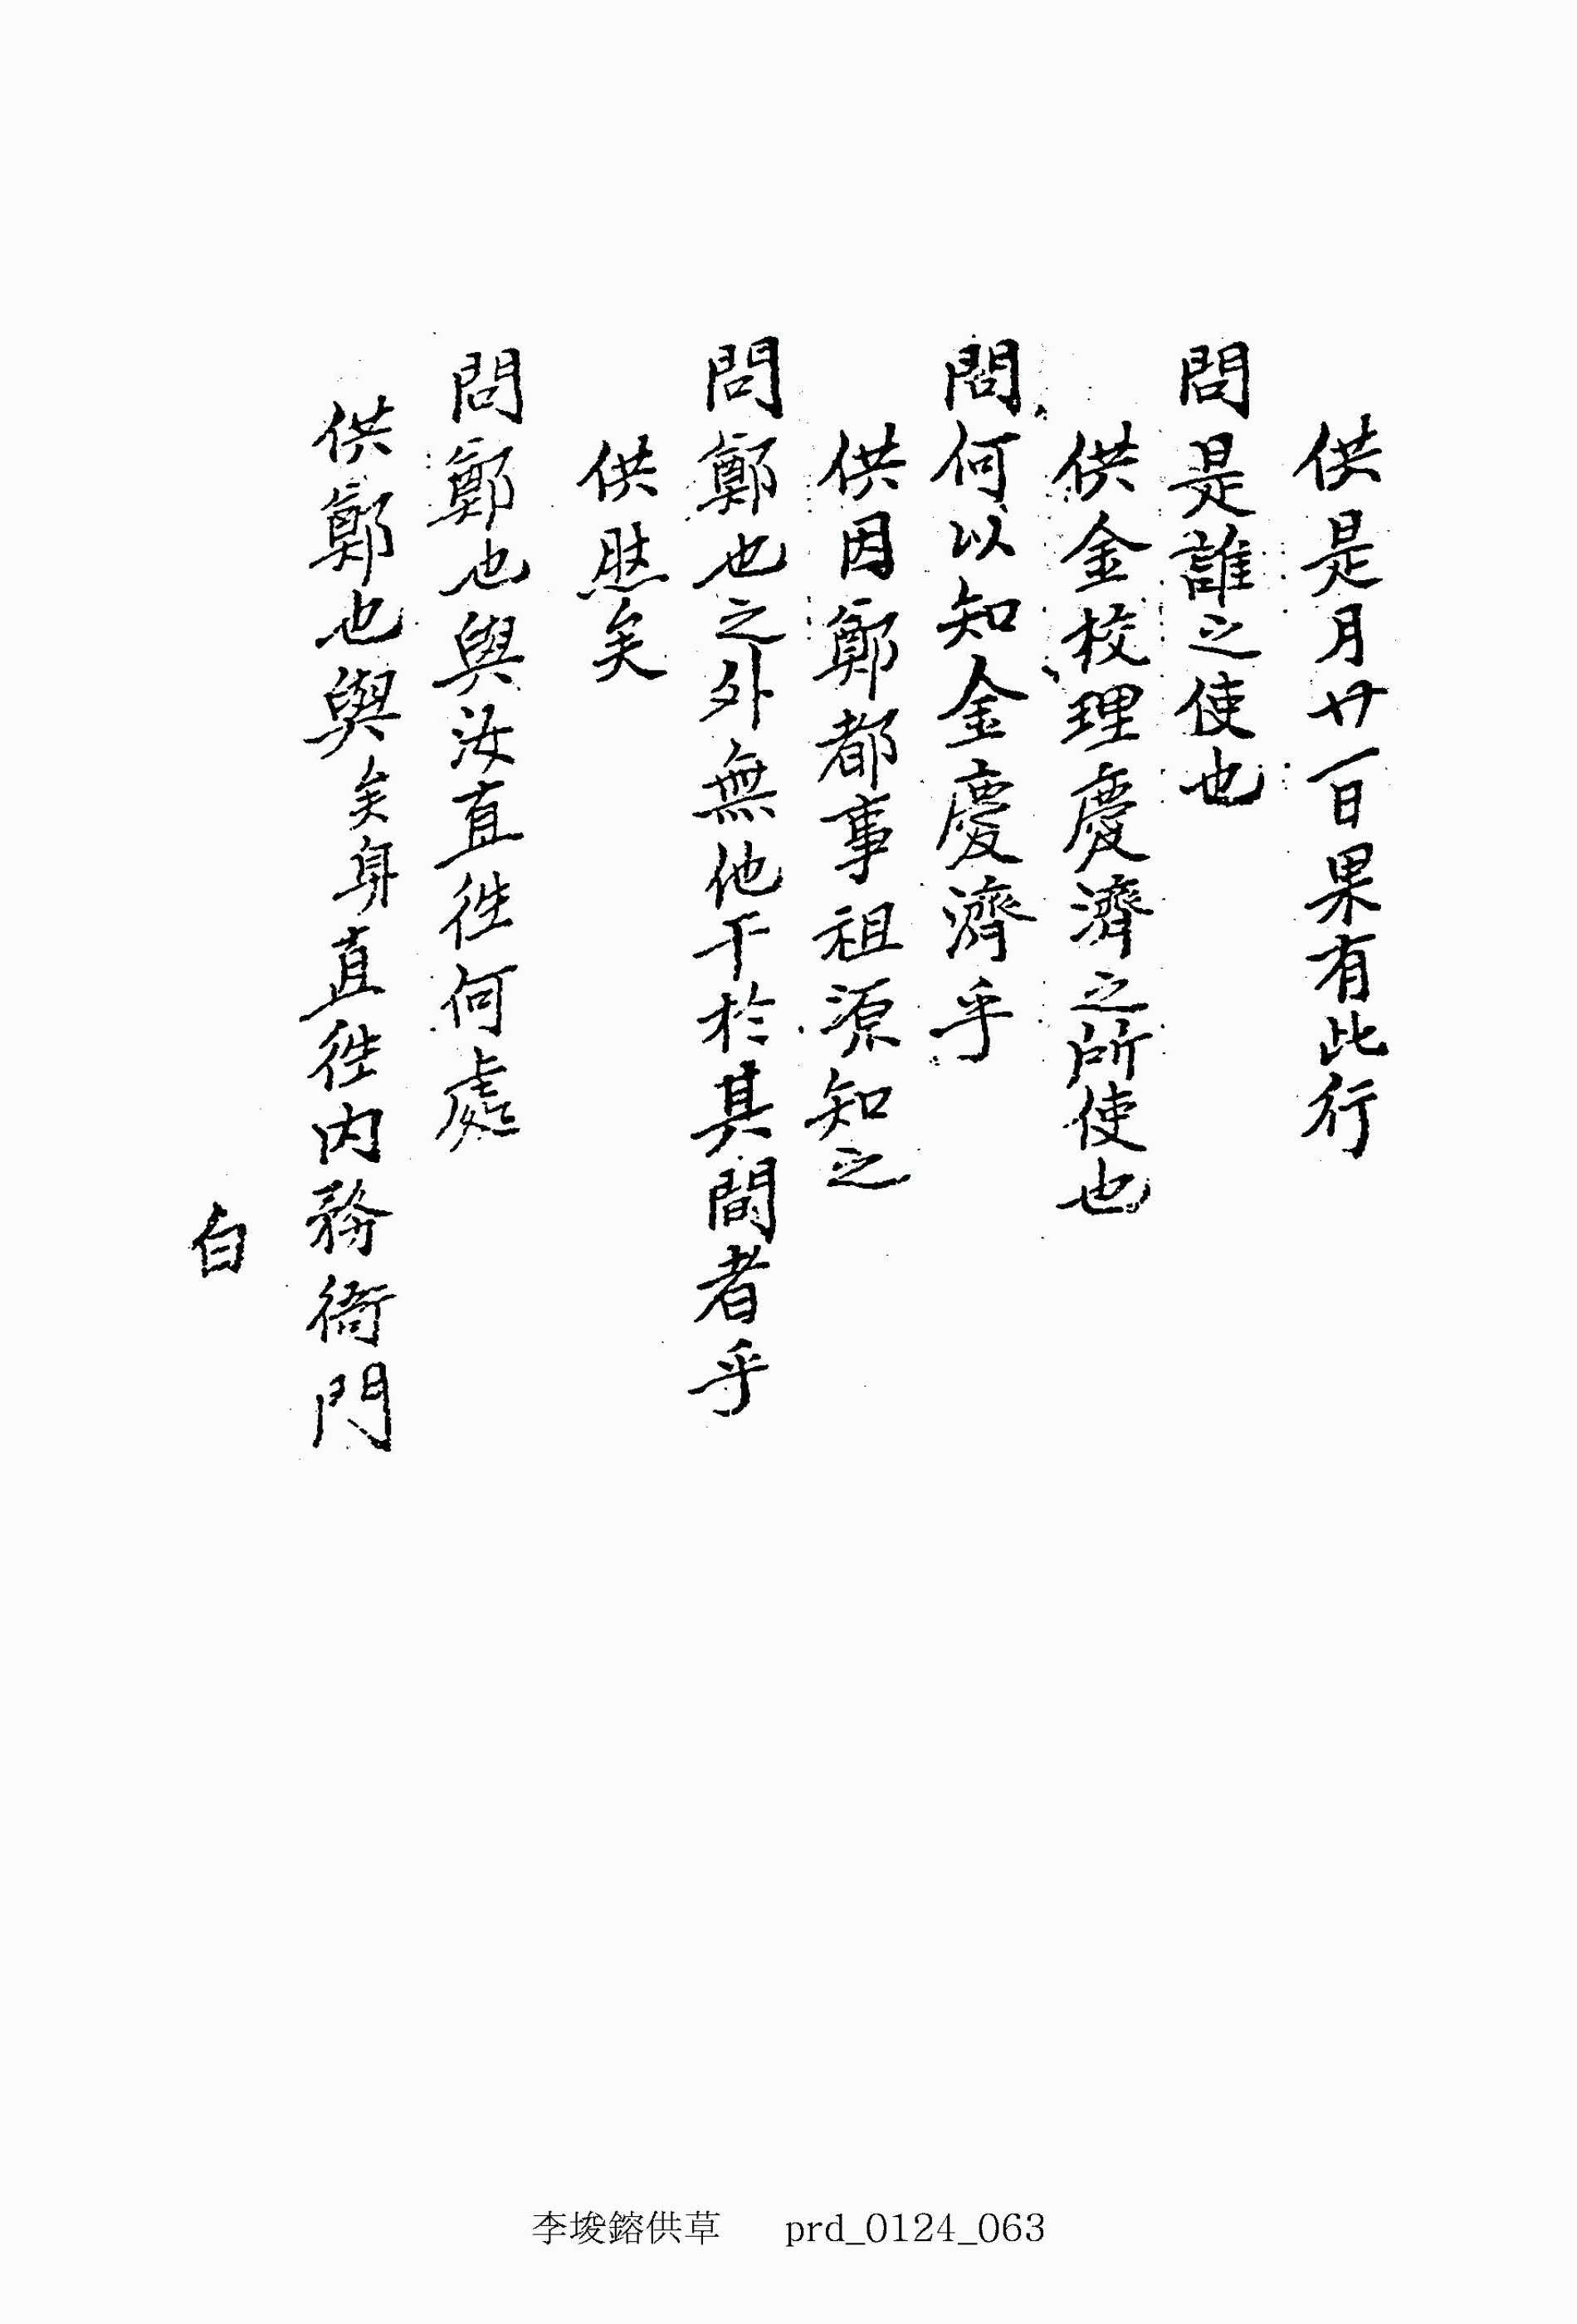 供是月廿一日果有此行
問是誰之使也
供金校理慶濟之所使也
問何以知金慶濟乎
供因鄭都事祖源知之
問鄭也之外無他干於其間者乎
供然矣
問鄭也與汝直徃何處
供鄭也與矣身直徃內務衙門
白
李埈鎔供草 prd_0124_063